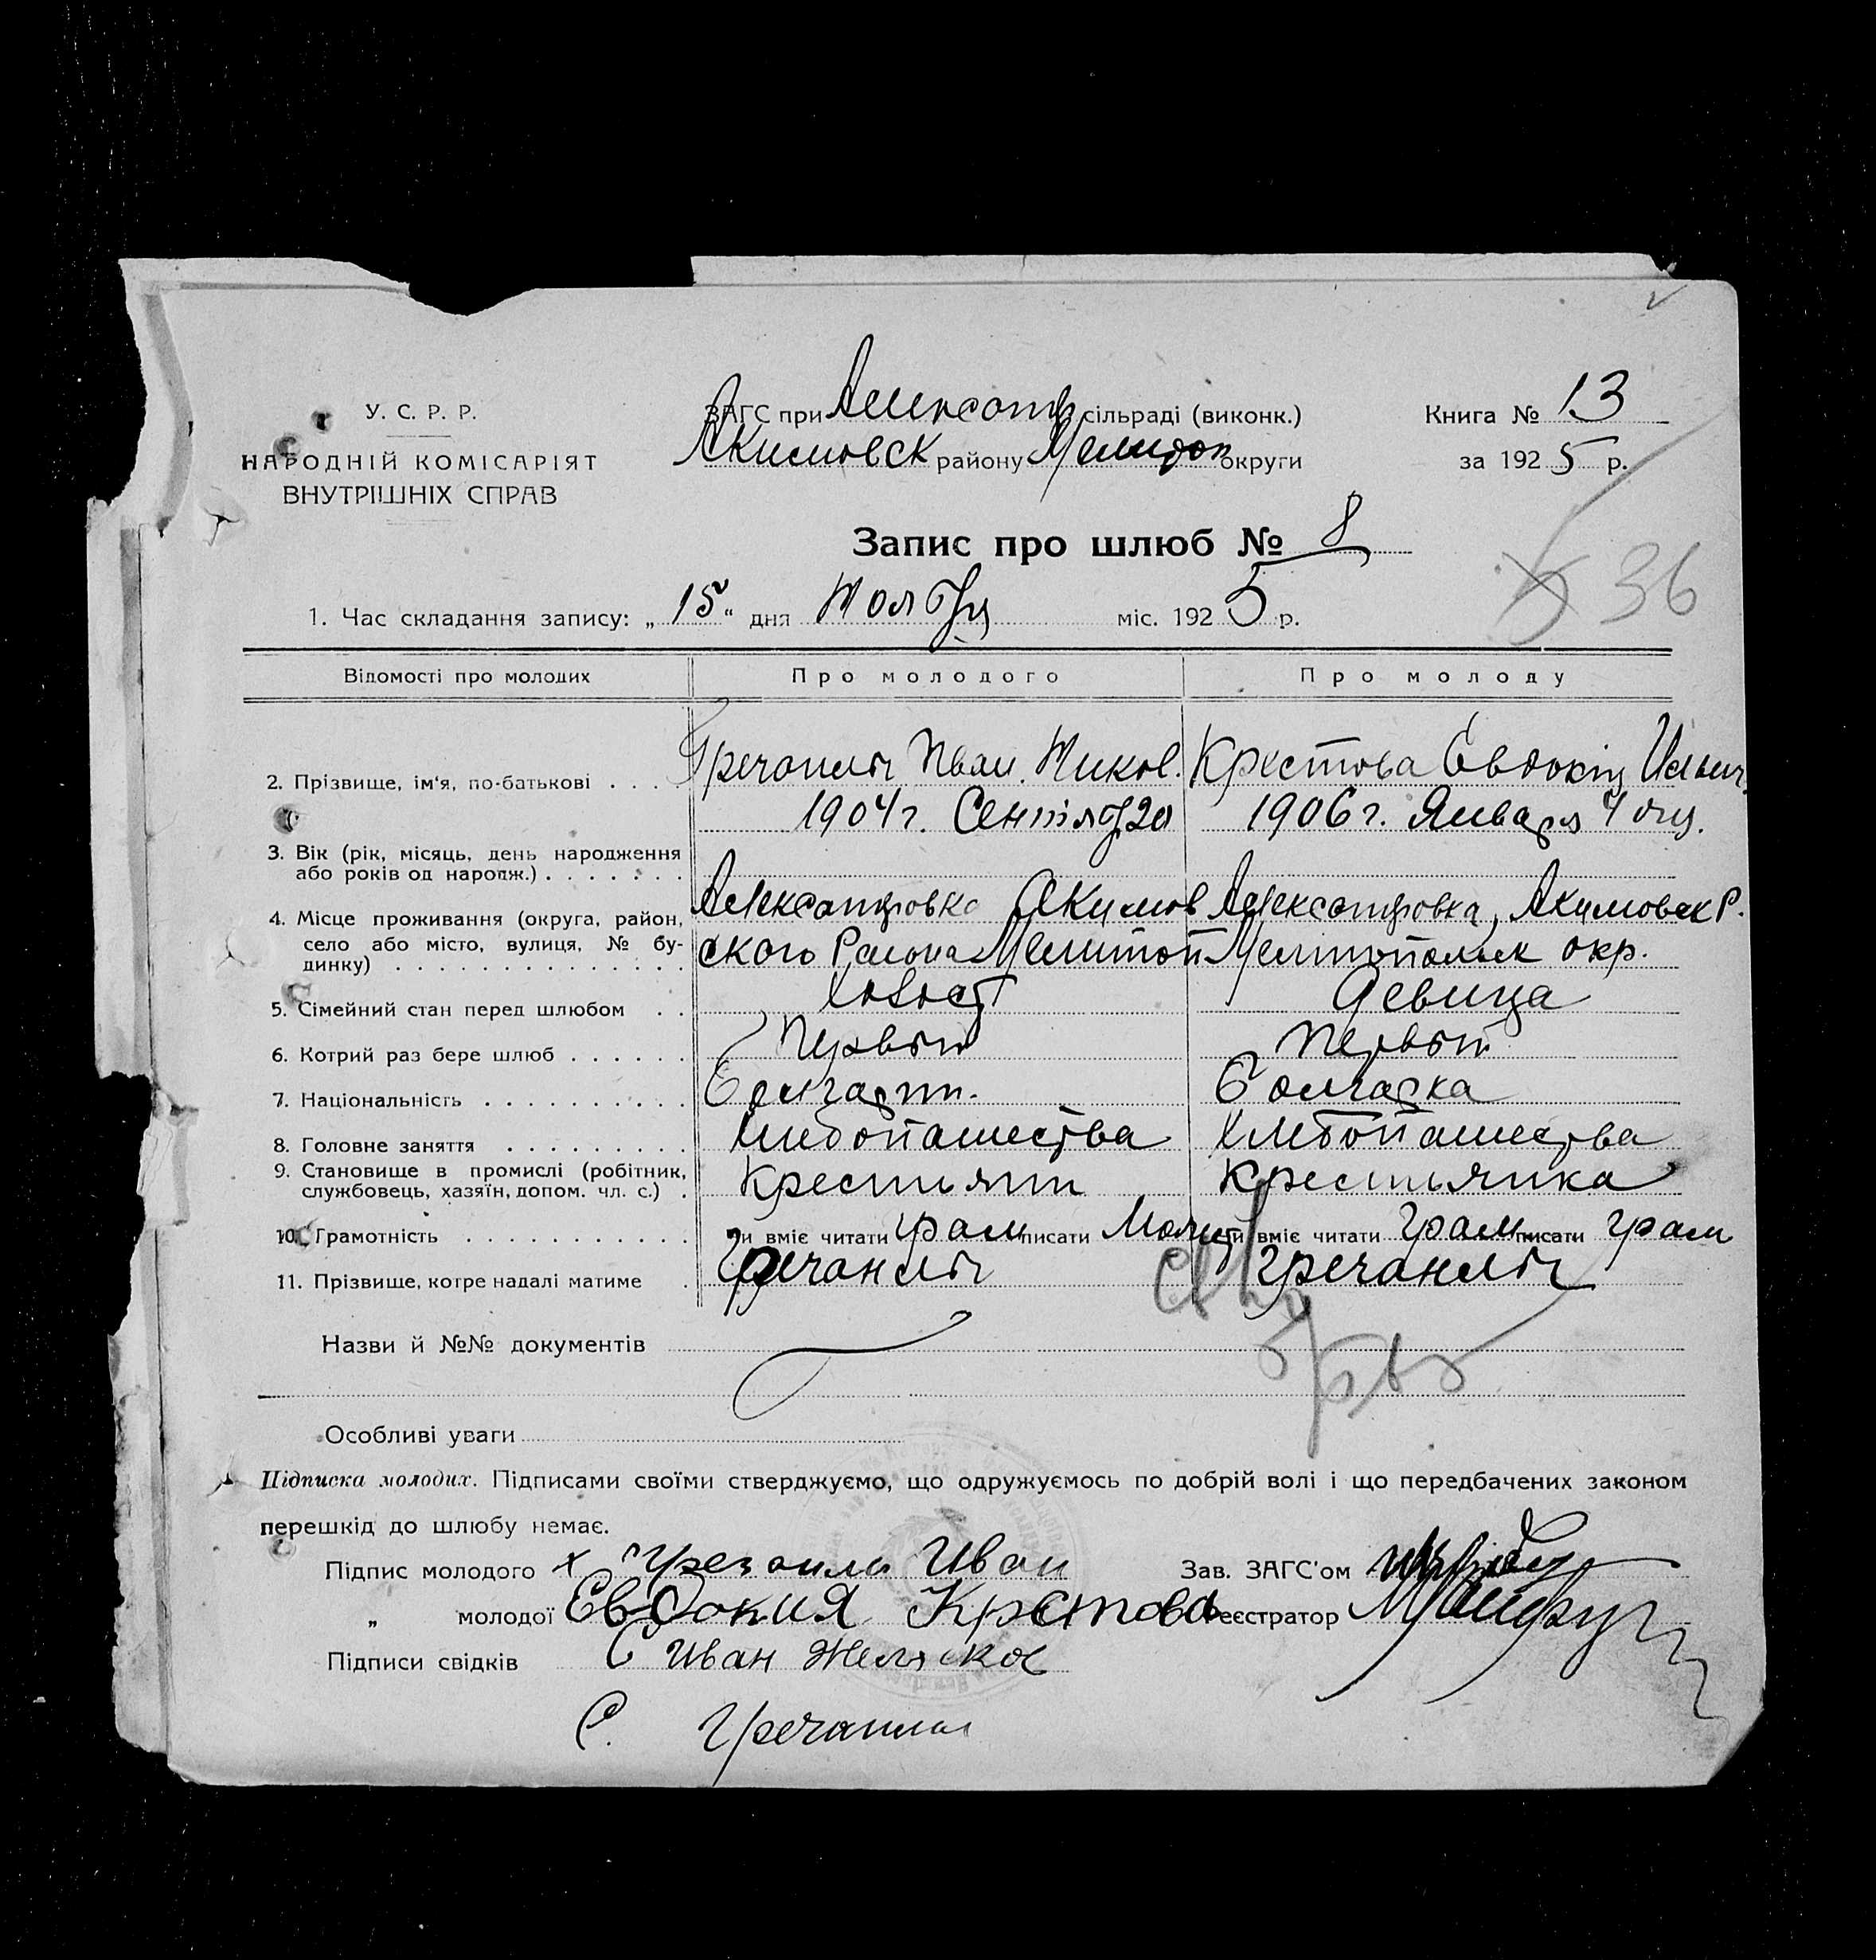 У. С. Р. Р.
НАРОДНІЙ КОМІСАРІЯТ
ВНУТРІШНІХ СПРАВ
ЗАГС при Александр сільраді (виконк.)
Акимовск району Мелитоп округи
Книга № 13
за 1925 р.
Запис про шлюб № 8
36
1. Час складання запису: „15“ дня Ноября міс. 1925 р.
Відомості про молодих Про молодого Про молоду
2. Прізвище, ім'я, по-батькові . . . . Гречанлы Иван. Никол. Крестова Евдокия Ильин.
1904 г. Сентяб 20 1906 г. Января 4 дня.
3. Вік (рік, місяць, день народження
або років од народж.) . . . . . . .
4. Місце проживання (округа, район, Александровка Акимов Александровка, Акимовск Р.
село або місто, вулиця, № бу- ского Района Мелитоп Мелитопольск окр.
динку) . . . . . . . . . . . . . .
5. Сімейний стан перед шлюбом . . Холост Девица
6. Котрий раз бере шлюб . . . . . . Первый Первый
7. Національність . . . . . . . . . . Болгарин. Болгарка
8. Головне заняття . . . . . . . . . Хлебопашества Хлебопашества
9. Становище в промислі (робітник, Крестьянин Крестьянка
службовець, хазяїн, допом. чл. с.) .
10. Грамотність . . . . . . . . . . . Чи вміє читати Грам писати Чи вміє читати Грам писати Грам
11. Прізвище, котре надалі матиме . Гречанлы Гречанлы
Назви й №№ документів
Особливі уваги
Підписка молодих. Підписами своїми стверджуємо, що одружуємось по добрій волі і що передбачених законом
перешкід до шлюбу немає.
Підпис молодого х Гречанла Иван Зав. ЗАГС'ом
„ молодої Евдокия Крстова Реєстратор
Підписи свідків С Иван Желясков
С. Гречанлы